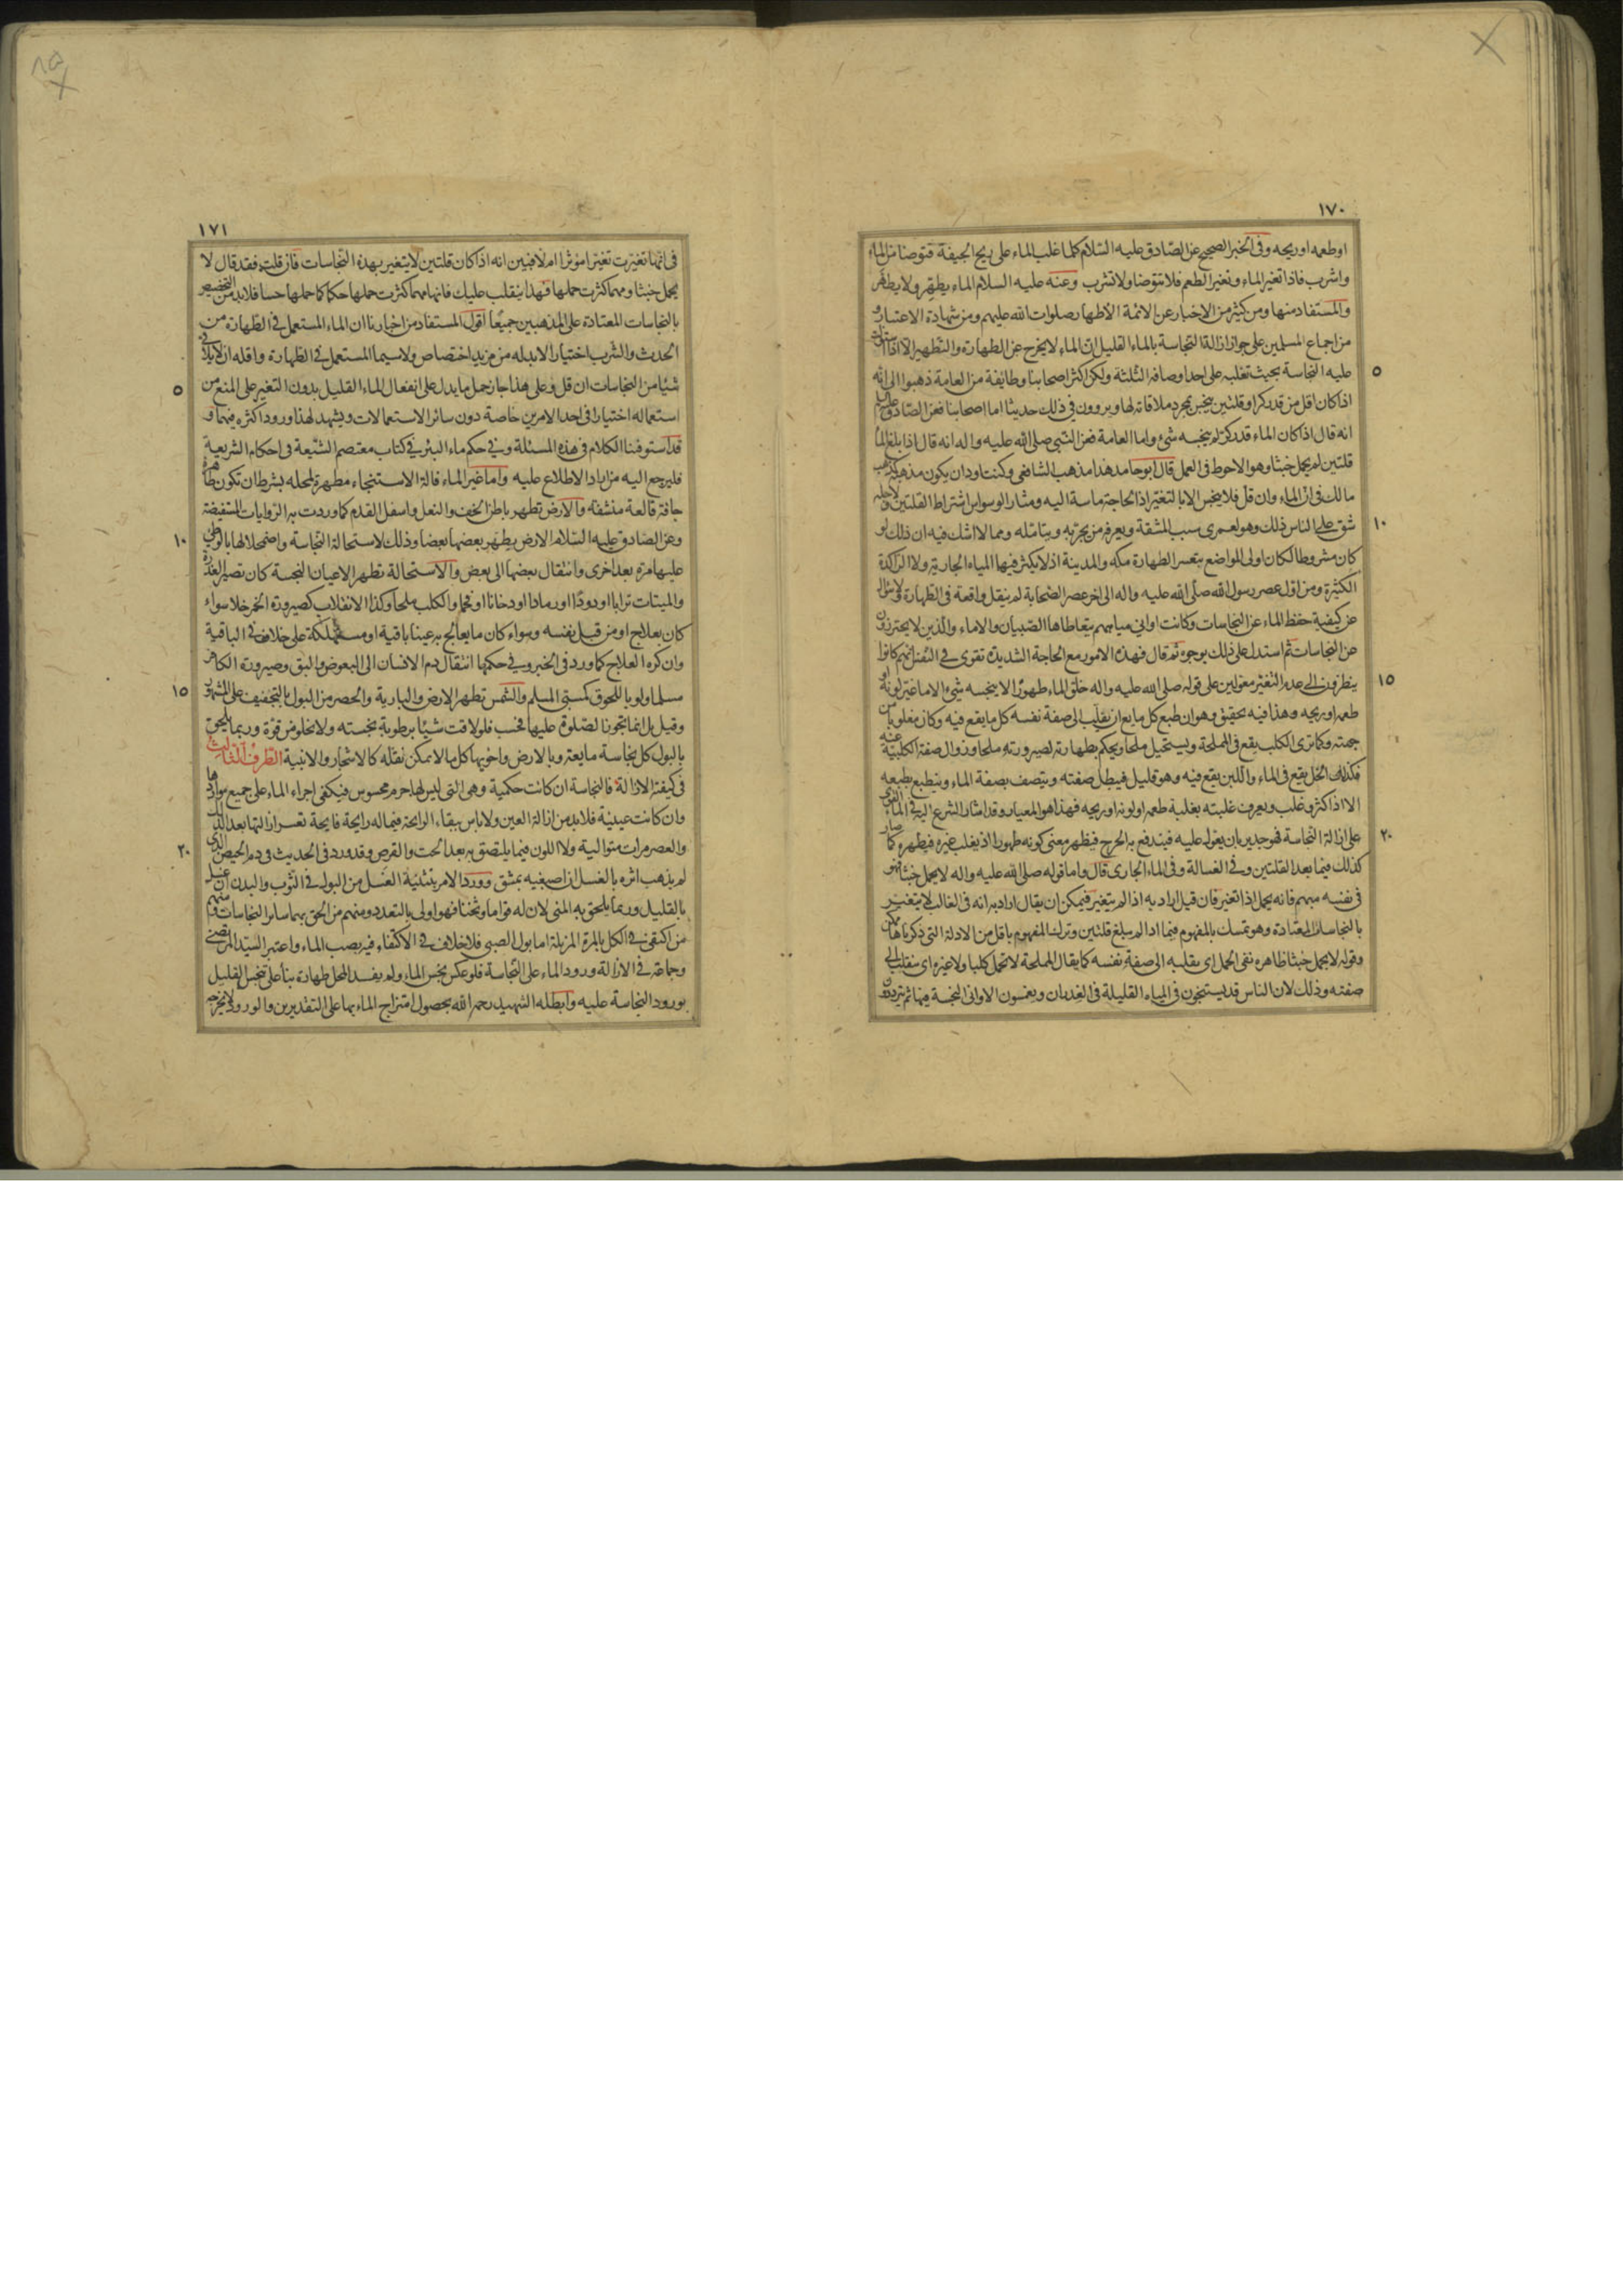 ١٧٠
اوطعمه اوريحه وفى الخبر الصحيح عن الصّادق عليه السّلام كلما غلب الماء على ريح الجيفة فتوضا من الماء
واشرب فاذا تغير الماء وتغير الطعم فلا تتوضا ولا تشرب وعنه عليه السلام الماء يطهّر ولا يطهّر
والمستفاد منها ومن كثير من الاخبار عن الائمة الأطهار صلوات الله عليهم ومن شهادة الاعتبار و
من اجماع المسلمين على جواز ازالة النجاسة بالماء القليل ان الماء لا يخرج عن الطهارة والتطهير الا اذا استولت
عليه النجاسة بحيث تغلبه على احد اوصافه الثلثة ولكن اكثر اصحابنا وطائفة من العامة ذهبوا الى انه
٥
اذا كان اقل من قدر كر او قلتين ينجس بمجرد ملاقاته لها ويروون فى ذلك حديثا اما اصحابنا فعن الصّادق عليه السلم
انه قال اذا كان الماء قدر كر لم ينجسه شئ واما العامة فعن النّبى صلى الله عليه واله انه قال اذا بلغ الماء
قلتين لم يحمل خبثا وهو الاحوط فى العمل قال ابو حامد هذا مذهب الشافعى وكنت اود ان يكون مذهبه كمذهب
مالك فى ان الماء وان قل فلا ينجس الا بالتغير اذ الحاجة ماسة اليه ومثار الوسواس اشتراط القلتين ولاجله
شق على الناس ذلك وهو لعمرى سبب المشقة ويعرفه من يجربه ويتامله ومما لا اشك فيه ان ذلك لو
١٠
كان مشروطا لكان اولى المواضع بتعسر الطهارة مكه والمدينة اذ لا يكثر فيها المياه الجارية ولا الراكدة
الكثيرة ومن اول عصر رسول الله صلى الله عليه واله الى اخر عصر الصّحابة لم ينقل واقعة فى الطهارة ولا سؤال
عن كيفية حفظ الماء عن النجاسات وكانت اوانى مياههم يتعاطاها الصّبيان والاماء والّذين لا يحترزون
عن النجاسات ثم استدل على ذلك بوجوه ثم قال فهذه الامور مع الحاجة الشديدة تقوى فى النفس انهم كانوا
ينظرون الى عدم التغير معولين على قوله صلى الله عليه واله خلق الماء طهورًا لا ينجسه شئ الا ما غير لونه او
١٥
طعمه او ريحه وهذا فيه تحقيق وهو ان طبع كل مايع ان يقلب الى صفة نفسه كل ما يقع فيه وكان مغلوبا من
جهته وكما ترى الكلب يقع فى المملحة ويستحيل ملحا ويحكم بطهارته لصيرورته ملحا وزوال صفة الكلبية عنه
فكذلك الخل يقع فى الماء واللبن يقع فيه وهو قليل فيبطل صفته ويتصف بصفة الماء وينطبع بطبعه
الا اذا كثر وغلب ويعرف غلبته بغلبة طعمه او لونه او ريحه فهذا هو المعيار وقد اشار الشرع اليه فى الماء القوى
على ازالة النجاسة فهو جدير بان يعول عليه فيندفع به الحرج فيظهر معنى كونه طهورا اذ يغلب غيره فيطهره كما صار
٢٠
كذلك فيما بعد القلتين وفى الغسالة وفى الماء الجارى قال واما قوله صلى الله عليه واله لا يحمل خبثا فهو
فى نفسه مبهم فانه يحمل اذا تغير فان قيل اراد به اذا لم يتغير فيمكن ان يقال اراد به انه فى الغالب لا يتغير
بالنجاسات المعتادة وهو تمسك بالمفهوم فيما اذا لم يبلغ قلتين وترك المفهوم باقل من الادلة التى ذكرناها ممكن
وقوله لا يحمل خبثا ظاهره نفى الحمل اى يقلبه الى صفة نفسه كما يقال المملحة لا تحمل كلبا ولا غيره اى ينقلب الى
صفته وذلك لان الناس قد يستنجون فى المياه القليلة فى الغدران ويغمسون الاوانى النجسة فيها ثم يترددون
١٧١
فى انها تغيرت تغيرا مؤثرا ام لا فتبين انه اذا كان قلتين لا يتغير بهذه النجاسات فان قلت فقد قال لا
يحمل خبثا ومهما كثرت حملها فهذا ينقلب عليك فانها مهما كثرت حملها حكما كما حملها حسا فلا بد من التخصيص
بالنجاسات المعتادة على المذهبين جميعًا اقول المستفاد من اخبارنا ان الماء المستعمل فى الطهارة من
الحدث والشرب اختيارا لا بد له من مزيد اختصاص ولا سيما المستعمل فى الطهارة واقله ان لا يلاقى
شيئا من النجاسات ان قل وعلى هذا جاز حمل ما يدل على انفعال الماء القليل بدون التغير على المنع من
٥
استعماله اختيارا فى احد الامرين خاصة دون سائر الاستعمالات ويشهد لهذا ورود اكثره فيهما و
قد استوفينا الكلام فى هذه المسئلة وفى حكم ماء البئر فى كتاب معتصم الشّيعة فى احكام الشريعة
فليرجع اليه من اراد الاطلاع عليه واما غير الماء فالة الاستنجاء مطهرة لمحله بشرط ان تكون طاهرة
جافة قالعة منشفة والارض تطهر باطن الخف والنعل واسفل القدم كما وردت به الروايات المستفيضة
وعن الصّادق عليه السّلام الارض يطهر بعضها بعضا وذلك لاستحالة النجاسة واضمحلالها بالوطى
١٠
عليها مرة بعد اخرى وانتقال بعضها الى بعض والاستحالة تطهر الاعيان النجسة كان تصير العذرة
والميتات ترابا او دودًا او رمادا او دخانا او فحما والكلب ملحا وكذا الانقلاب كصيرورة الخمر خلا سواء
كان بعلاج او من قبل نفسه وسواء كان ما يعالج به عينا باقية او مستهلكة على خلاف فى الباقية
وان كره العلاج كما ورد فى الخبر وفى حكمها انتقال دم الانسان الى البعوض والبق وصيرورة الكافر
مسلما ولو باللحوق كمسبى المسلم والشمس تطهر الارض والبارية والحصر من البول بالتجفيف على المشهور
١٥
وقيل بل انما تجوز الصلوة عليها فحسب فلو لاقت شيئا برطوبة نجسته ولا يخلو من قوة وربما يلحق
بالبول كل نجاسة مايعة وبالارض واخويها كل ما لا يمكن نقله كالاشجار والابنية الطرف الثالث
فى كيفية الازالة فالنجاسة ان كانت حكمية وهى التى ليس لها جرم محسوس فيكفى اجراء الماء على جميع مواردها
وان كانت عينية فلا بد من ازالة العين ولا باس ببقاء الرايحة فيما له رايحة فايحة تعسر ازالتها بعد الدلك
والعصر مرات متوالية ولا اللون فيما يلتصق به بعد الحت والقرص وقد ورد فى الحديث فى دم الحيض الذى
٢٠
لم يذهب اثره بالغسل ان اصبغيه بمشق وورد الامر بتثنية الغسل من البول فى الثوب والبدن ان غسل
بالقليل وربما يلحق به المنى لان له قواما وثخنا فهو اولى بالتعدد ومنهم من الحق بهما سائر النجاسات ومنهم
من اكتفى فى الكل بالمرة المزيلة اما بول الصبى فلا خلاف فى الاكتفاء فيه بصب الماء واعتبر السيّد المرتضى
وجماعة فى الازالة ورود الماء على النجاسة فلو عكس نجس الماء ولم يفد المحل طهارة بناء على تنجس القليل
بورود النجاسة عليه وابطله الشهيد رحمه الله بحصول امتزاج الماء بها على التقديرين والورود لا يخرجه